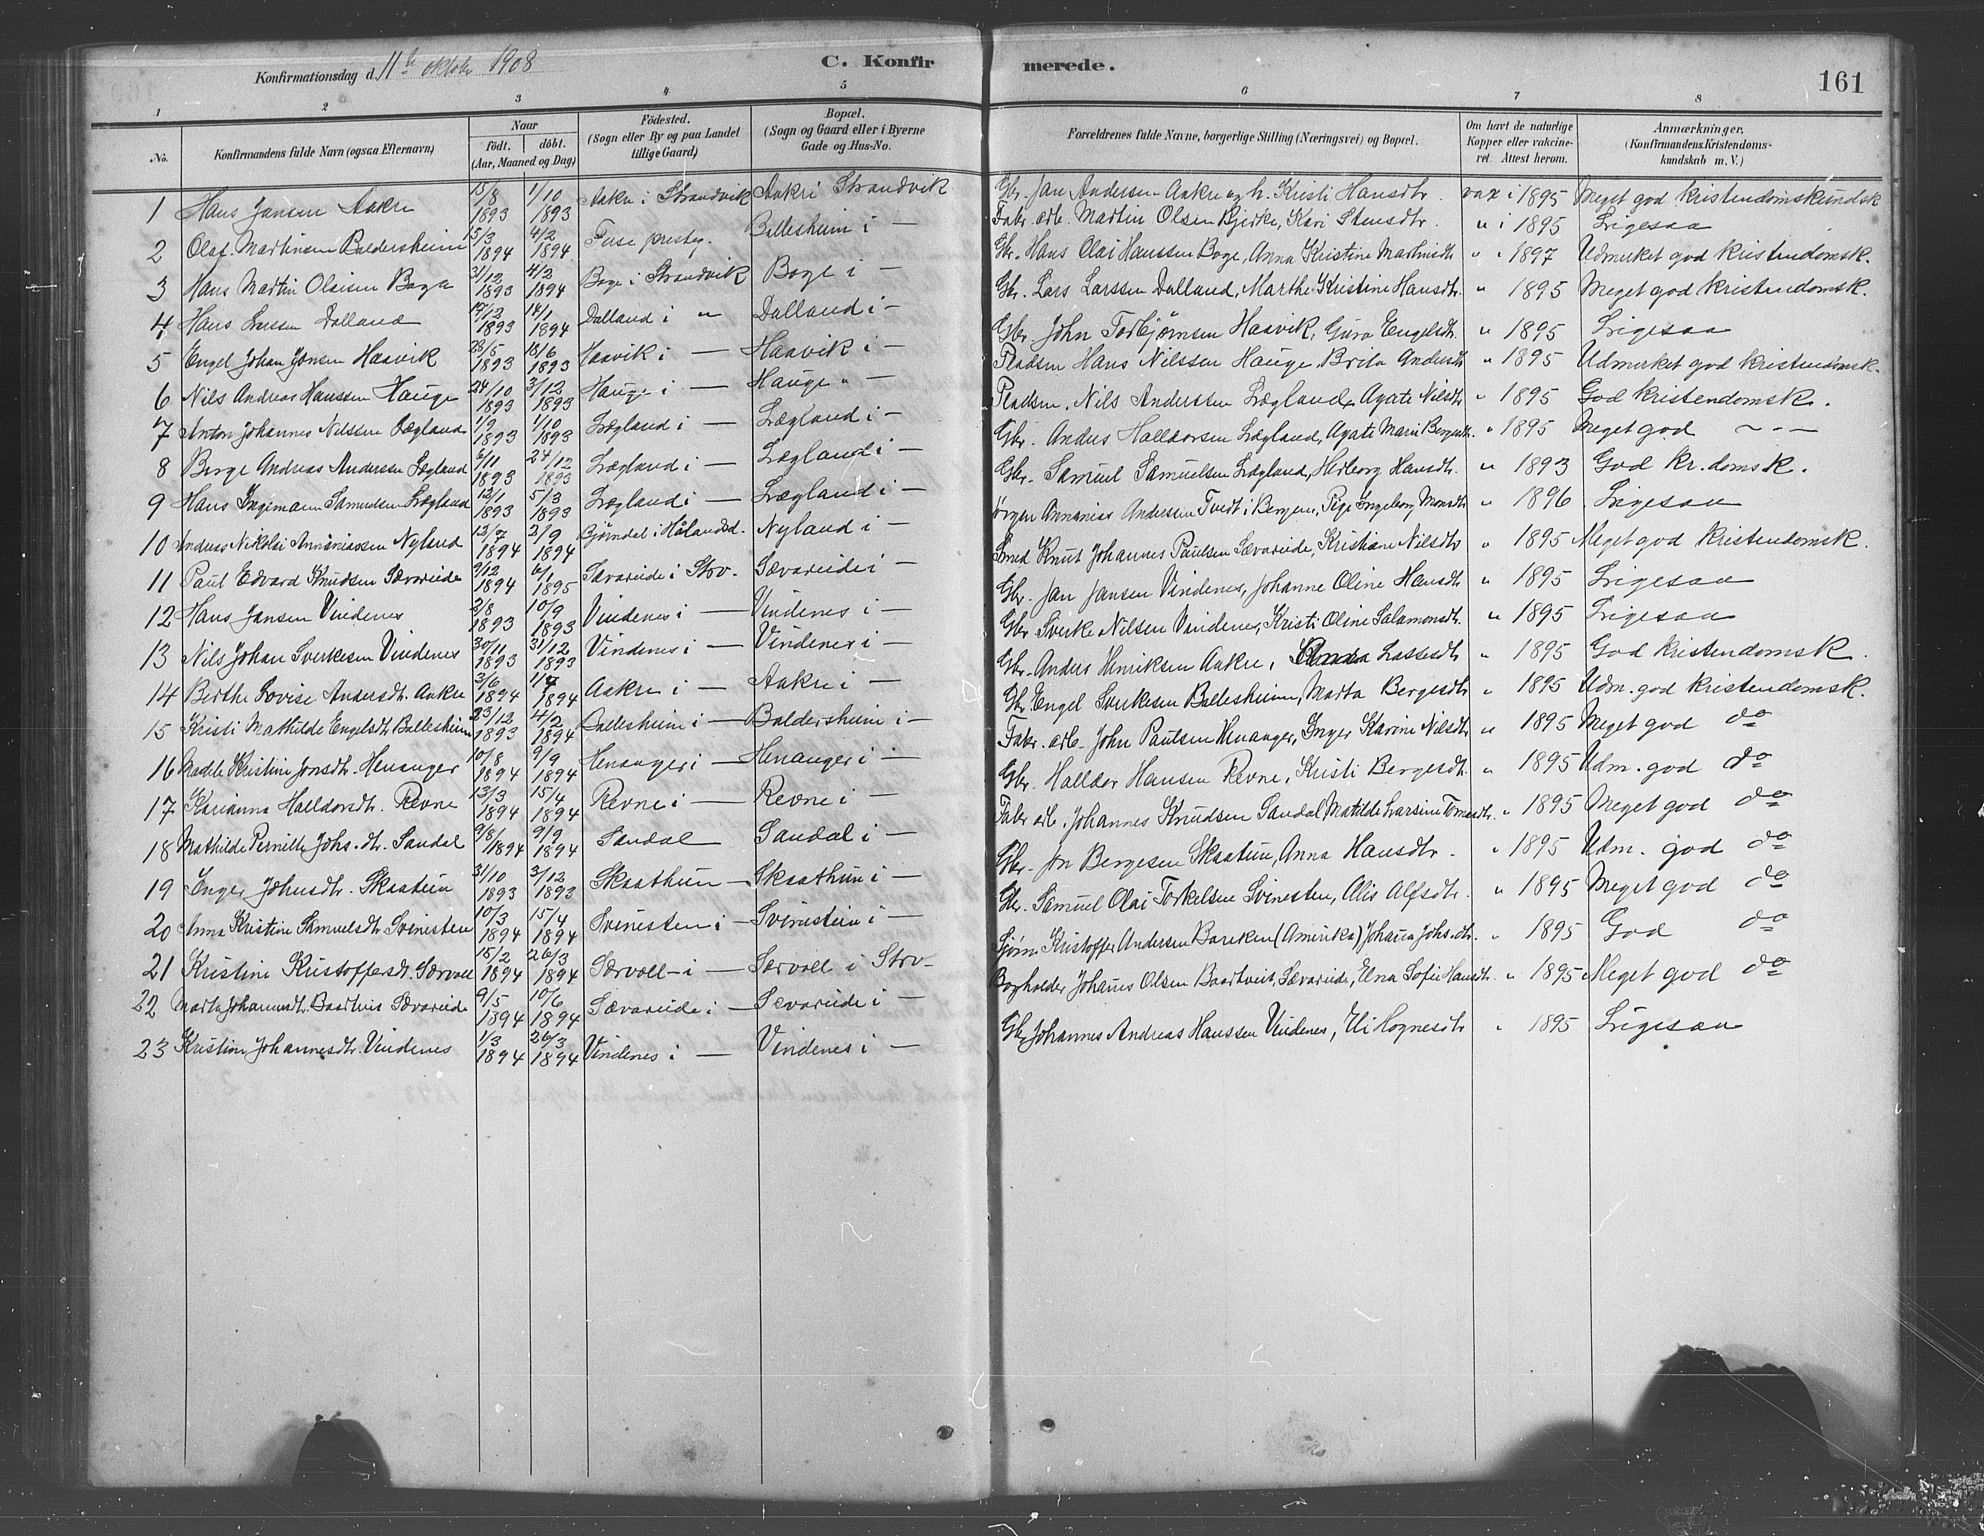 Konfirmationsdag d. 11te oktobr 1908
C. Konfirmerede.
161
1 2 3 4 5 6 7 8
No.
Konfirmandens fulde Navn (ogsaa Efternavn)
Naar
födt. döbt.
(Aar, Maaned og Dag)
Födested.
(Sogn eller By og paa Landet
tillige Gaard)
Bopæl.
(Sogn og Gaard eller i Byerne
Gade og Hus-No.
Forældrenes fulde Navne, borgerlige Stilling (Næringsvei) og Bopæl.
Om havt de naturlige
Kopper eller vakcine-
ret. Attest herom.
Anmærkninger.
(Konfirmandens Kristendoms-
kundskab m. V.)
1 Hans Jansen Aakre 15/8 1893 1/10 1893 Aakre i Strandvik Aakre i Strandvik Gbr. Jan Andersen Aakre og h. Kristi Hansdtr. vax i 1895 Meget god kristendomskundsk
2 Olaf Martinsen Baldersheim 15/3 1894 4/2 1894 Fuse prestg. Ballesheim i — Fabr. arb. Martin Olsen Bjerke, Kari Stensdtr. " i 1895 Ligesaa
3 Hans Martin Olaisen Boge 31/12 1893 4/2 1894 Boge i Strandvik Boge i — Gbr. Hans Olai Hanssen Boge, Anna Kristine Martinsdtr " " 1897 Udmerket god kristendomsk.
4 Hans Larssen Dalland 17/12 1893 14/1 1894 Dalland i " Dalland i — Gbr. Lars Larssen Dalland, Marthe Kristine Hansdtr. " 1895 Meget god kristendomsk.
5 Engel Johan Jonsen Haavik 28/5 1893 18/6 1893 Haavik i — Haavik i — Gbr. John Torbjørnsen Haavik, Guro Engelsdtr. " 1895 Ligesaa
6 Nils Andreas Hanssen Hauge 24/10 1893 3/12 1893 Hauge i — Hauge " — Pladsm Hans Nilssen Hauge, Brita Andersdtr " 1895 Udmerket god kristendomsk.
7 Anton Johannes Nilssen Lægland 1/9 1893 1/10 1893 Lægland i — Lægland i — Pladsm. Nils Anderssen Lægland, Agate Nilsdtr " 1895 God kristendomsk.
8 Berge Andreas Andersen Lægland 6/11 1893 24/12 1893 Lægland i — Lægland i — Gbr. Anders Halldorsen Lægland, Agate Marie Bergesdtr. " 1895 Meget god — — —
9 Hans Ingemann Samuelsen Lægland 12/1 1893 5/3 1893 Lægland i — Lægland i — Gbr. Samuel Samuelsen Lægland, Herborg Hansdtr. " 1893 God kr.domsk.
10 Andreas Nikolai Annaniassen Nyland 12/7 1894 2/9 1894 Bjørndal i Hålandsd. Nyland i — Jørgen Annanias Andersen Tvedt i Bergen, Pige Ingeborg Monsdtr " 1896 Ligesaa
11 Paul Edvard Knudsen Sævareide 9/12 1894 6/1 1895 Sævareide i Strv. Sævareide i — Smed Knut Johannes Paulsen Sævareide, Kristiane Nilsdtr " 1895 Meget god kristendomsk.
12 Hans Jansen Vindenes 2/8 1893 10/9 1893 Vindenes i — Vindenes i — Gbr. Jan Jansen Vindenes, Johanne Oline Hansdtr " 1895 Ligesaa
13 Nils Johan Sverkesen Vindenes 30/11 1893 31/12 1893 Vindenes i — Vindenes i — Gbr. Sverke Nilsen Vindenes, Kristi Oline Salamonsdtr. " 1895 Ligesaa
14 Birthe Lovise Andersdtr. Aakre 3/6 1894 1/7 1894 Aakre i — Aakre i — Gbr. Anders Henriksen Aakre, Anna Lassesdtr " 1895 God kristendomsk.
15 Kristi Mathilde Engelsdtr Ballesheim 23/12 1893 4/2 1894 Ballesheim i — Baldersheim i — Gbr. Engel Sverkesen Ballesheim, Marta Bergesdtr " 1895 Udm. god kristendomsk.
16 Madele Kristine Jonsdtr. Henanger 10/8 1894 9/9 1894 Henanger i — Henanger i — Fabr. arb. John Paulsen Henanger, Inger Karine Nilsdtr " 1895 Meget god do
17 Karianna Halldorsdtr. Revne 13/3 1894 15/4 1894 Revne i — Revne i — Gbr. Halldor Hansen Revne, Kristi Bergesdtr. " 1895 Udm. god do
18 Mathilde Pernille Johs.dtr. Sandal 9/8 1894 9/9 1894 Sandal Sandal i — Fabr arb. Johannes Knudsen Sandal, Matilde Larsine Tomasdtr " 1895 Meget god do
19 Inger Johnsdtr. Skaatun 31/10 1893 3/12 1893 Skaathun — Skaathun i — Gbr. Jon Bergesen Skaatun, Anna Hansdtr. " 1895 Udm. god do
20 Anna Kristine Samuelsdtr Svinesten 10/3 1894 15/4 1894 Svinesten i — Svinestein i — Gbr. Samuel Olai Torkelsen Svinesten, Alis Alfsdtr. " 1895 Meget god do
21 Kristine Kristoffersdt. Særvoll 15/2 1894 26/3 1894 Særvoll i — Særvoll i Strv. Sjøm Kristoffer Andersen Bareken (Amerika) Johanna Johs.dtr. " 1895 God do
22 Marta Johannsdtr. Baartveit Sævareide 9/5 1894 10/6 1894 Sævareide i — Sævareide i — Bogholder Johannes Olsen Baartveit, Sævareide, Elna Sofie Hansdtr. " 1895 Meget god do
23 Kristine Johannesdtr. Vindenes 1/3 1894 26/3 1894 Vindenes i — Vindenes i — Gbr. Johannes Andreas Hanssen Vindenes, Eli Hognesdtr " 1895 Ligesaa